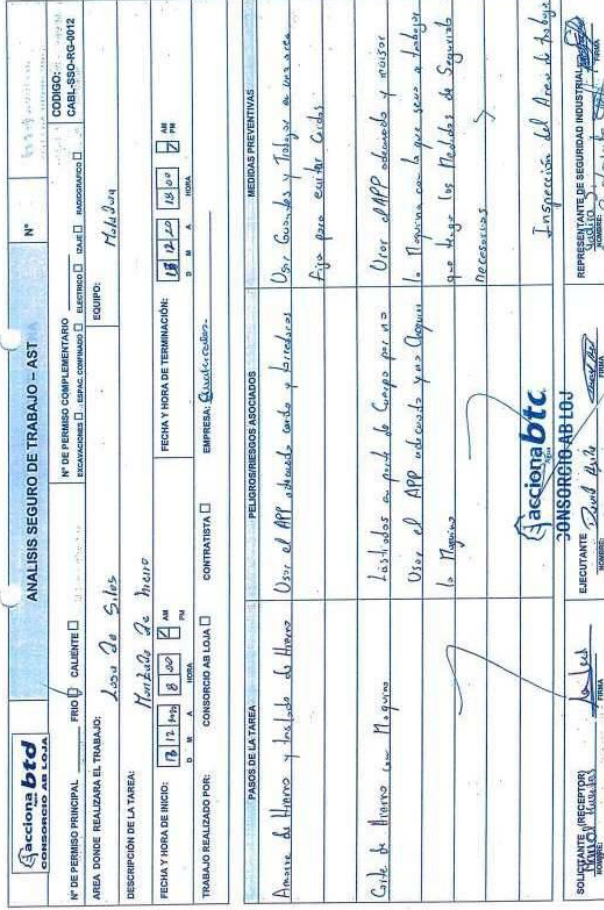 acciona btd
CONSORCIO AB LOJA
ANALISIS SEGURO DE TRABAJO – AST
Nº
Nº DE PERMISO PRINCIPAL
FRIO
CALIENTE
Nº DE PERMISO COMPLEMENTARIO
EXCAVACIONES ESPAC. CONFINADO ELECTRICO IZAJE RADIOGRAFICO
CODIGO:
CABL-SSO-RG-0012
AREA DONDE REALIZARA EL TRABAJO:
Losa de Silos
EQUIPO:
DESCRIPCIÓN DE LA TAREA:
FECHA Y HORA DE INICIO:
8 00
AM
PM
D M A HORA
FECHA Y HORA DE TERMINACIÓN:
18 00
AM
PM
D M A HORA
TRABAJO REALIZADO POR:
CONSORCIO AB LOJA
CONTRATISTA
EMPRESA:
PASOS DE LA TAREA
PELIGROS/RIESGOS ASOCIADOS
MEDIDAS PREVENTIVAS
Amarre de Hierro y traslado de Hierro
Usar el APP adecuado
Usar Guantes y Trabajar en una area
Fija para evitar Caidas
Corte de Hierro con Maquina
en parte de Cuerpo por no
Usar el APP adecuado y no
la Maquina
Usar el APP adecuado y revisar
la Maquina con la que se va a trabajar
que tenga las Medidas de Seguridad
necesarias
Inspección del Area de trabajo
acciona btc
Agua
CONSORCIO AB LOJ
SOLICITANTE (RECEPTOR)
NOMBRE:
FIRMA
EJECUTANTE
David
NOMBRE:
FIRMA
REPRESENTANTE DE SEGURIDAD INDUSTRIAL
NOMBRE:
FIRMA